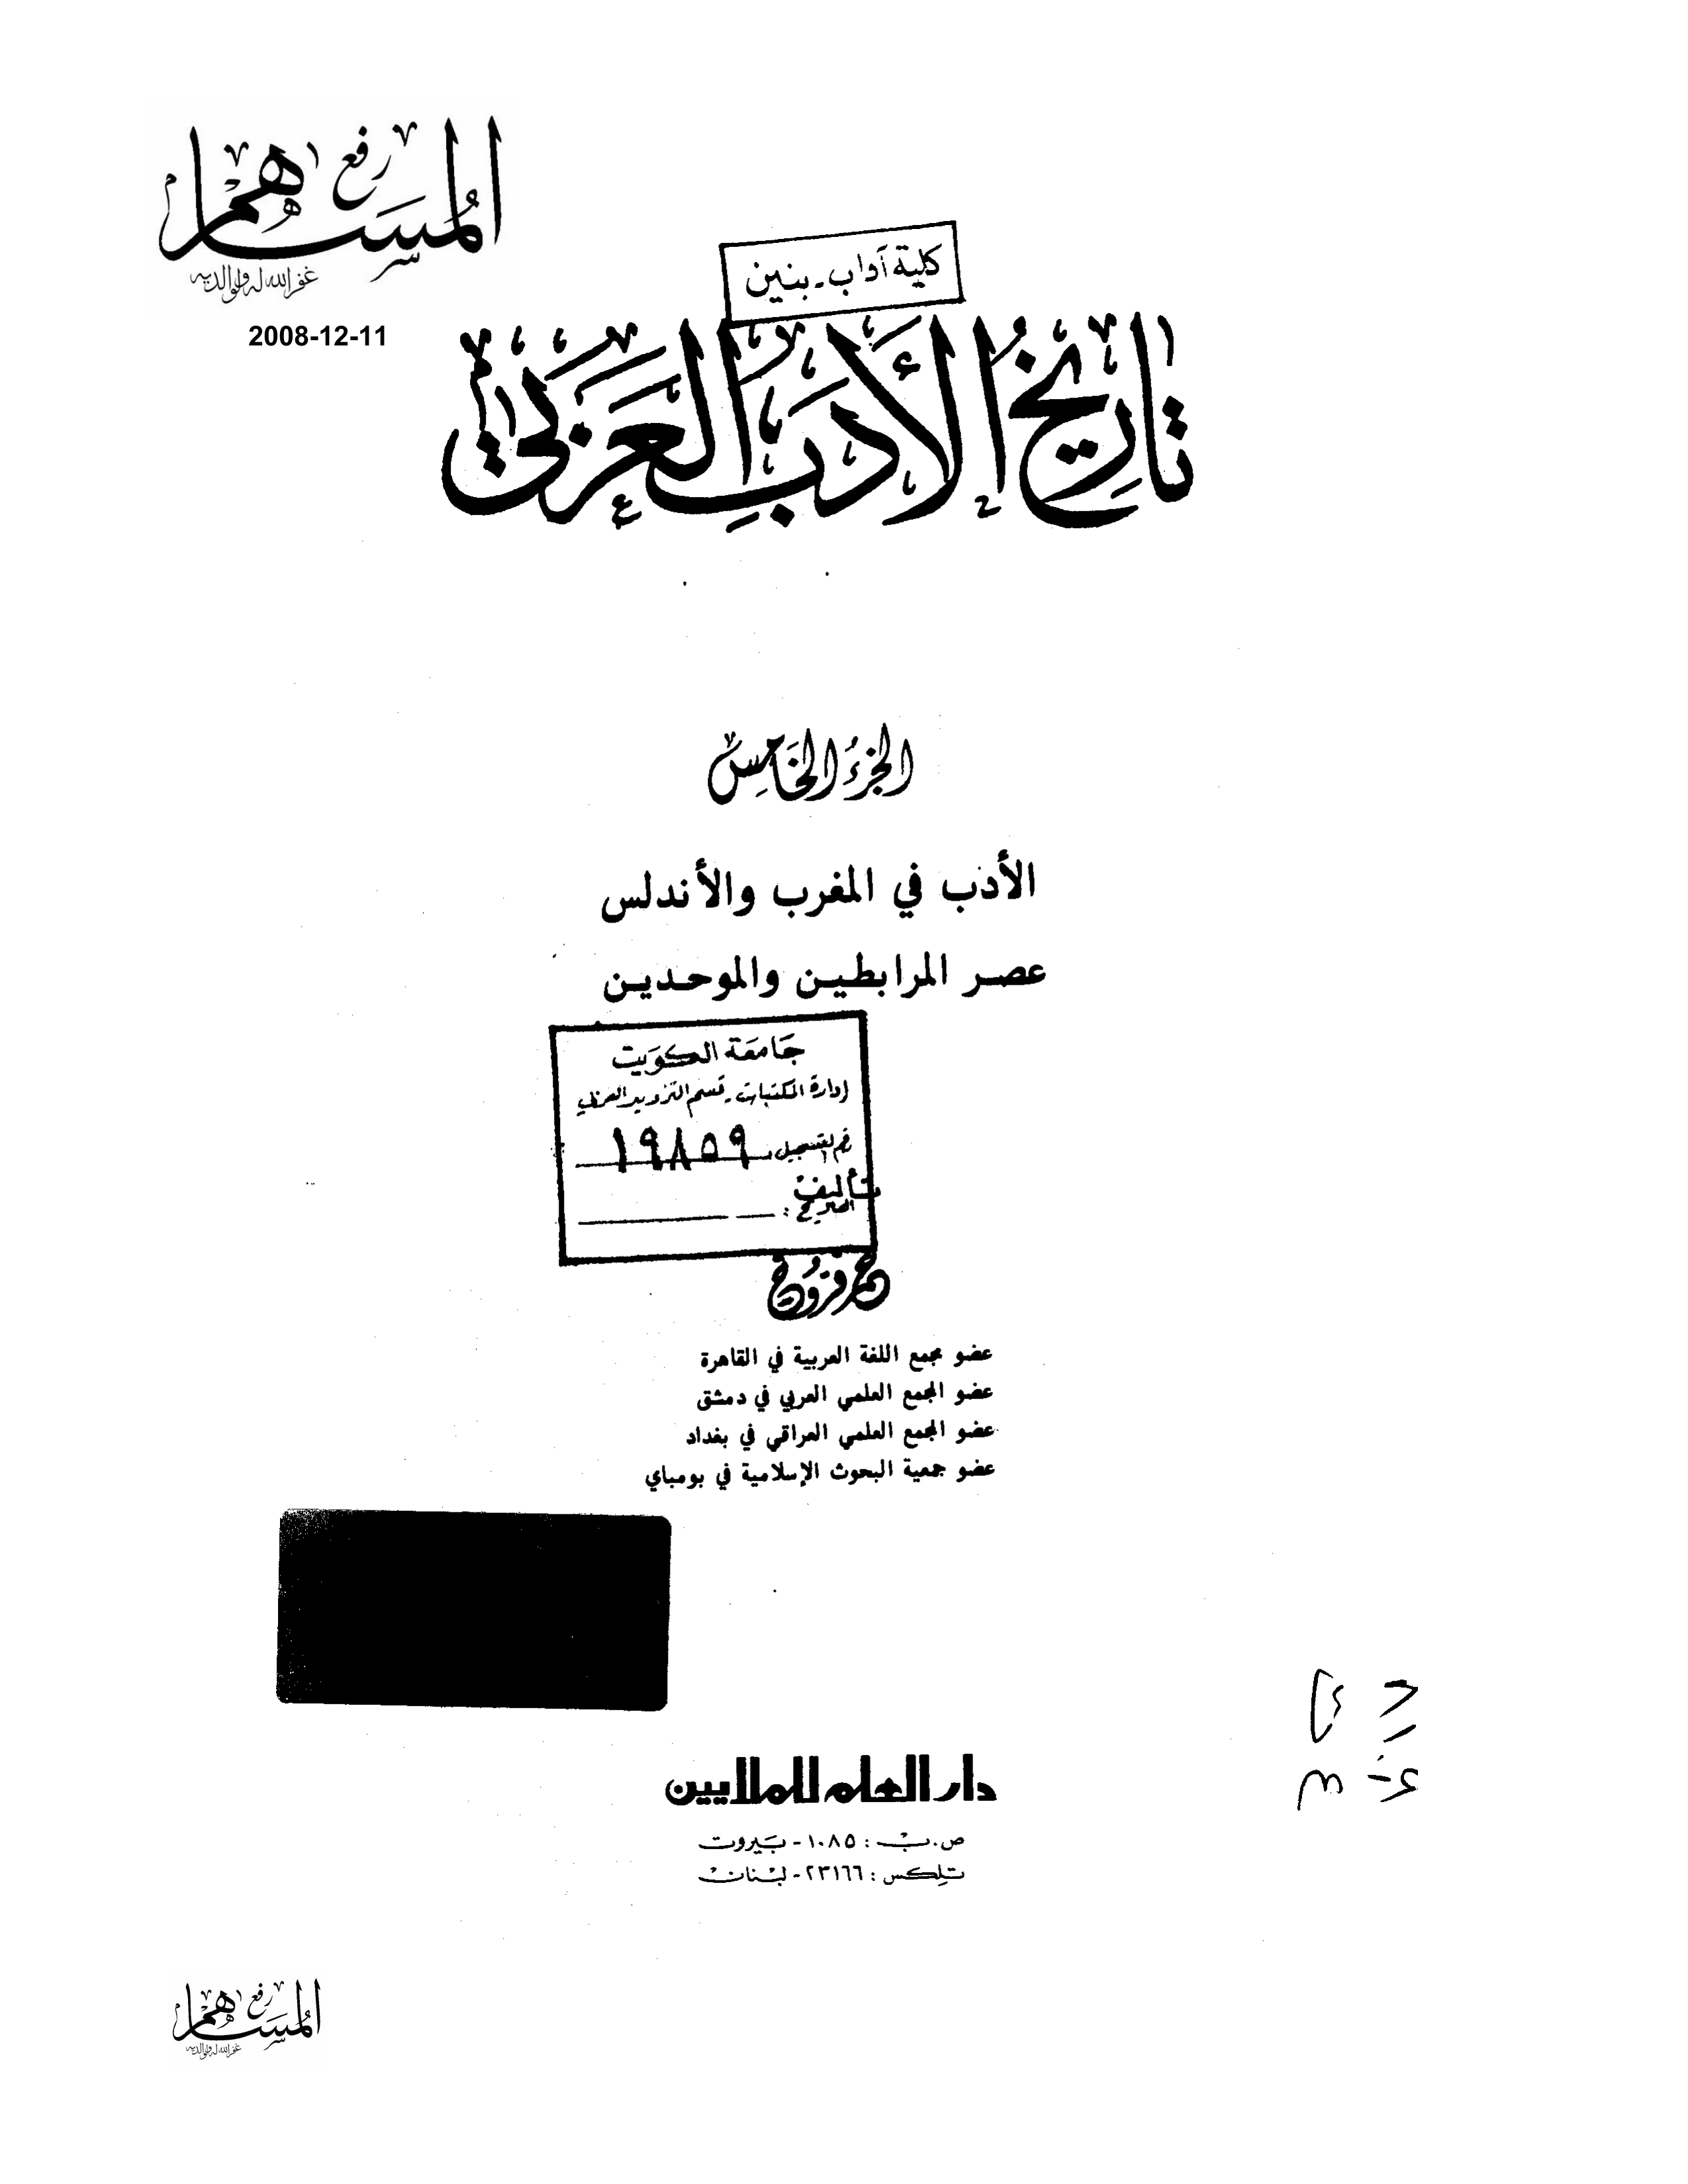 رفع
المساهم
غفر الله له ولوالديه
2008-12-11
كلية آداب - بنين
تاريخ الأدب العربي
الجزء الخامس
الأدب في المغرب والأندلس
عصر المرابطين والموحدين
جامعة الكويت
إدارة المكتبات - قسم التزويد العربي
رقم التسجيل ١٩٨٥٩
تأليف
التاريخ :
عمر فروخ
عضو مجمع اللغة العربية في القاهرة
عضو المجمع العلمي العربي في دمشق
عضو المجمع العلمي العراقي في بغداد
عضو جمعية البحوث الإسلامية في بومباي
دار العلم للملايين
ص.ب : ١٠٨٥ - بيروت
تلكس : ٢٣١٦٦ - لبنان
رفع
المساهم
غفر الله له ولوالديه